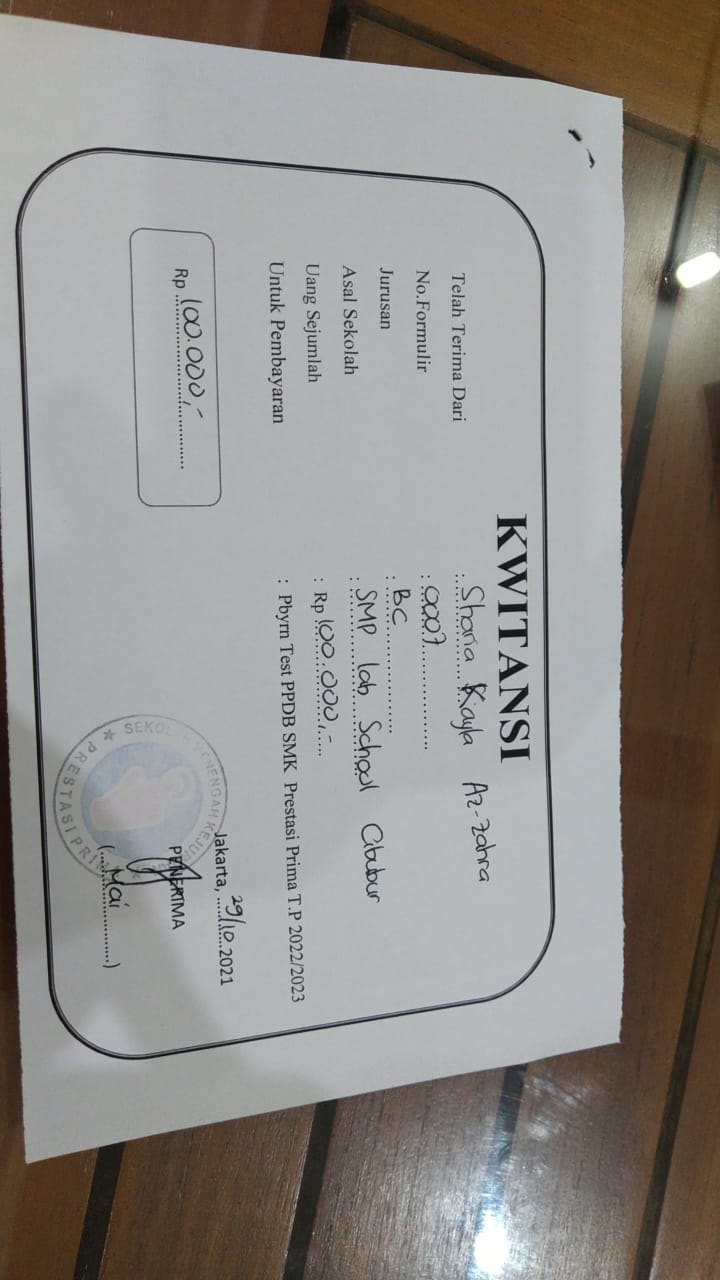 KWITANSI
Telah Terima Dari : Sharia Kayla Az-Zahra
No.Formulir : 0007
Jurusan : BC
Asal Sekolah : SMP lab School Cibubur
Uang Sejumlah : Rp 100.000,-
Untuk Pembayaran : Pbyrn Test PPDB SMK Prestasi Prima T.P 2022/2023
Jakarta, 29/10 2021
Rp 100.000,-
PENERIMA
(Mai)
SEKOLAH MENENGAH KEJURUAN
★ PRESTASI PRIMA ★